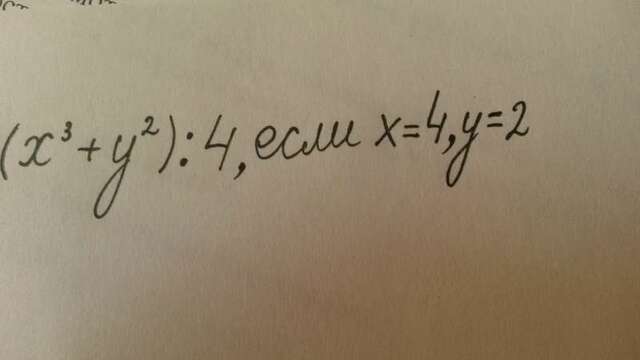 (x³+y²):4, если x=4, y=2